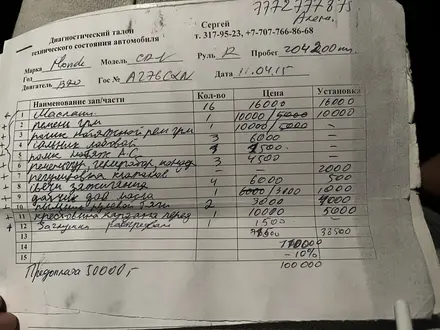 7772777875
Алена.
Диагностический талон
технического состояния автомобиля
Сергей
т. 317-95-23, +7-707-766-86-68
Марка Honda Модель CR-V Руль R Пробег 204200 км
Год
Двигатель B20 Гос № A276CXN Дата 11.04.15
Наименование зап/части Кол-во Цена Установка
1 16 16000 16000
2 ремень грм 1 10000/5000 10000
3 ролик натяжной рем грм 1 10000/5000
4 сальник лобовой 3 6000
5 ролик 1500
6 3 4500
7 регулировка клапанов – 2000
8 свечи зажигания 4 6000 500
9 датчик дав масла 1 6000/3000 1000
10 2 3000 4000
11 крестовина кардана перед 1 10000 5000
12 Заглушка 1 1500 –
13 38500
14 110000
15 -10%
Предоплата 50000, 100000